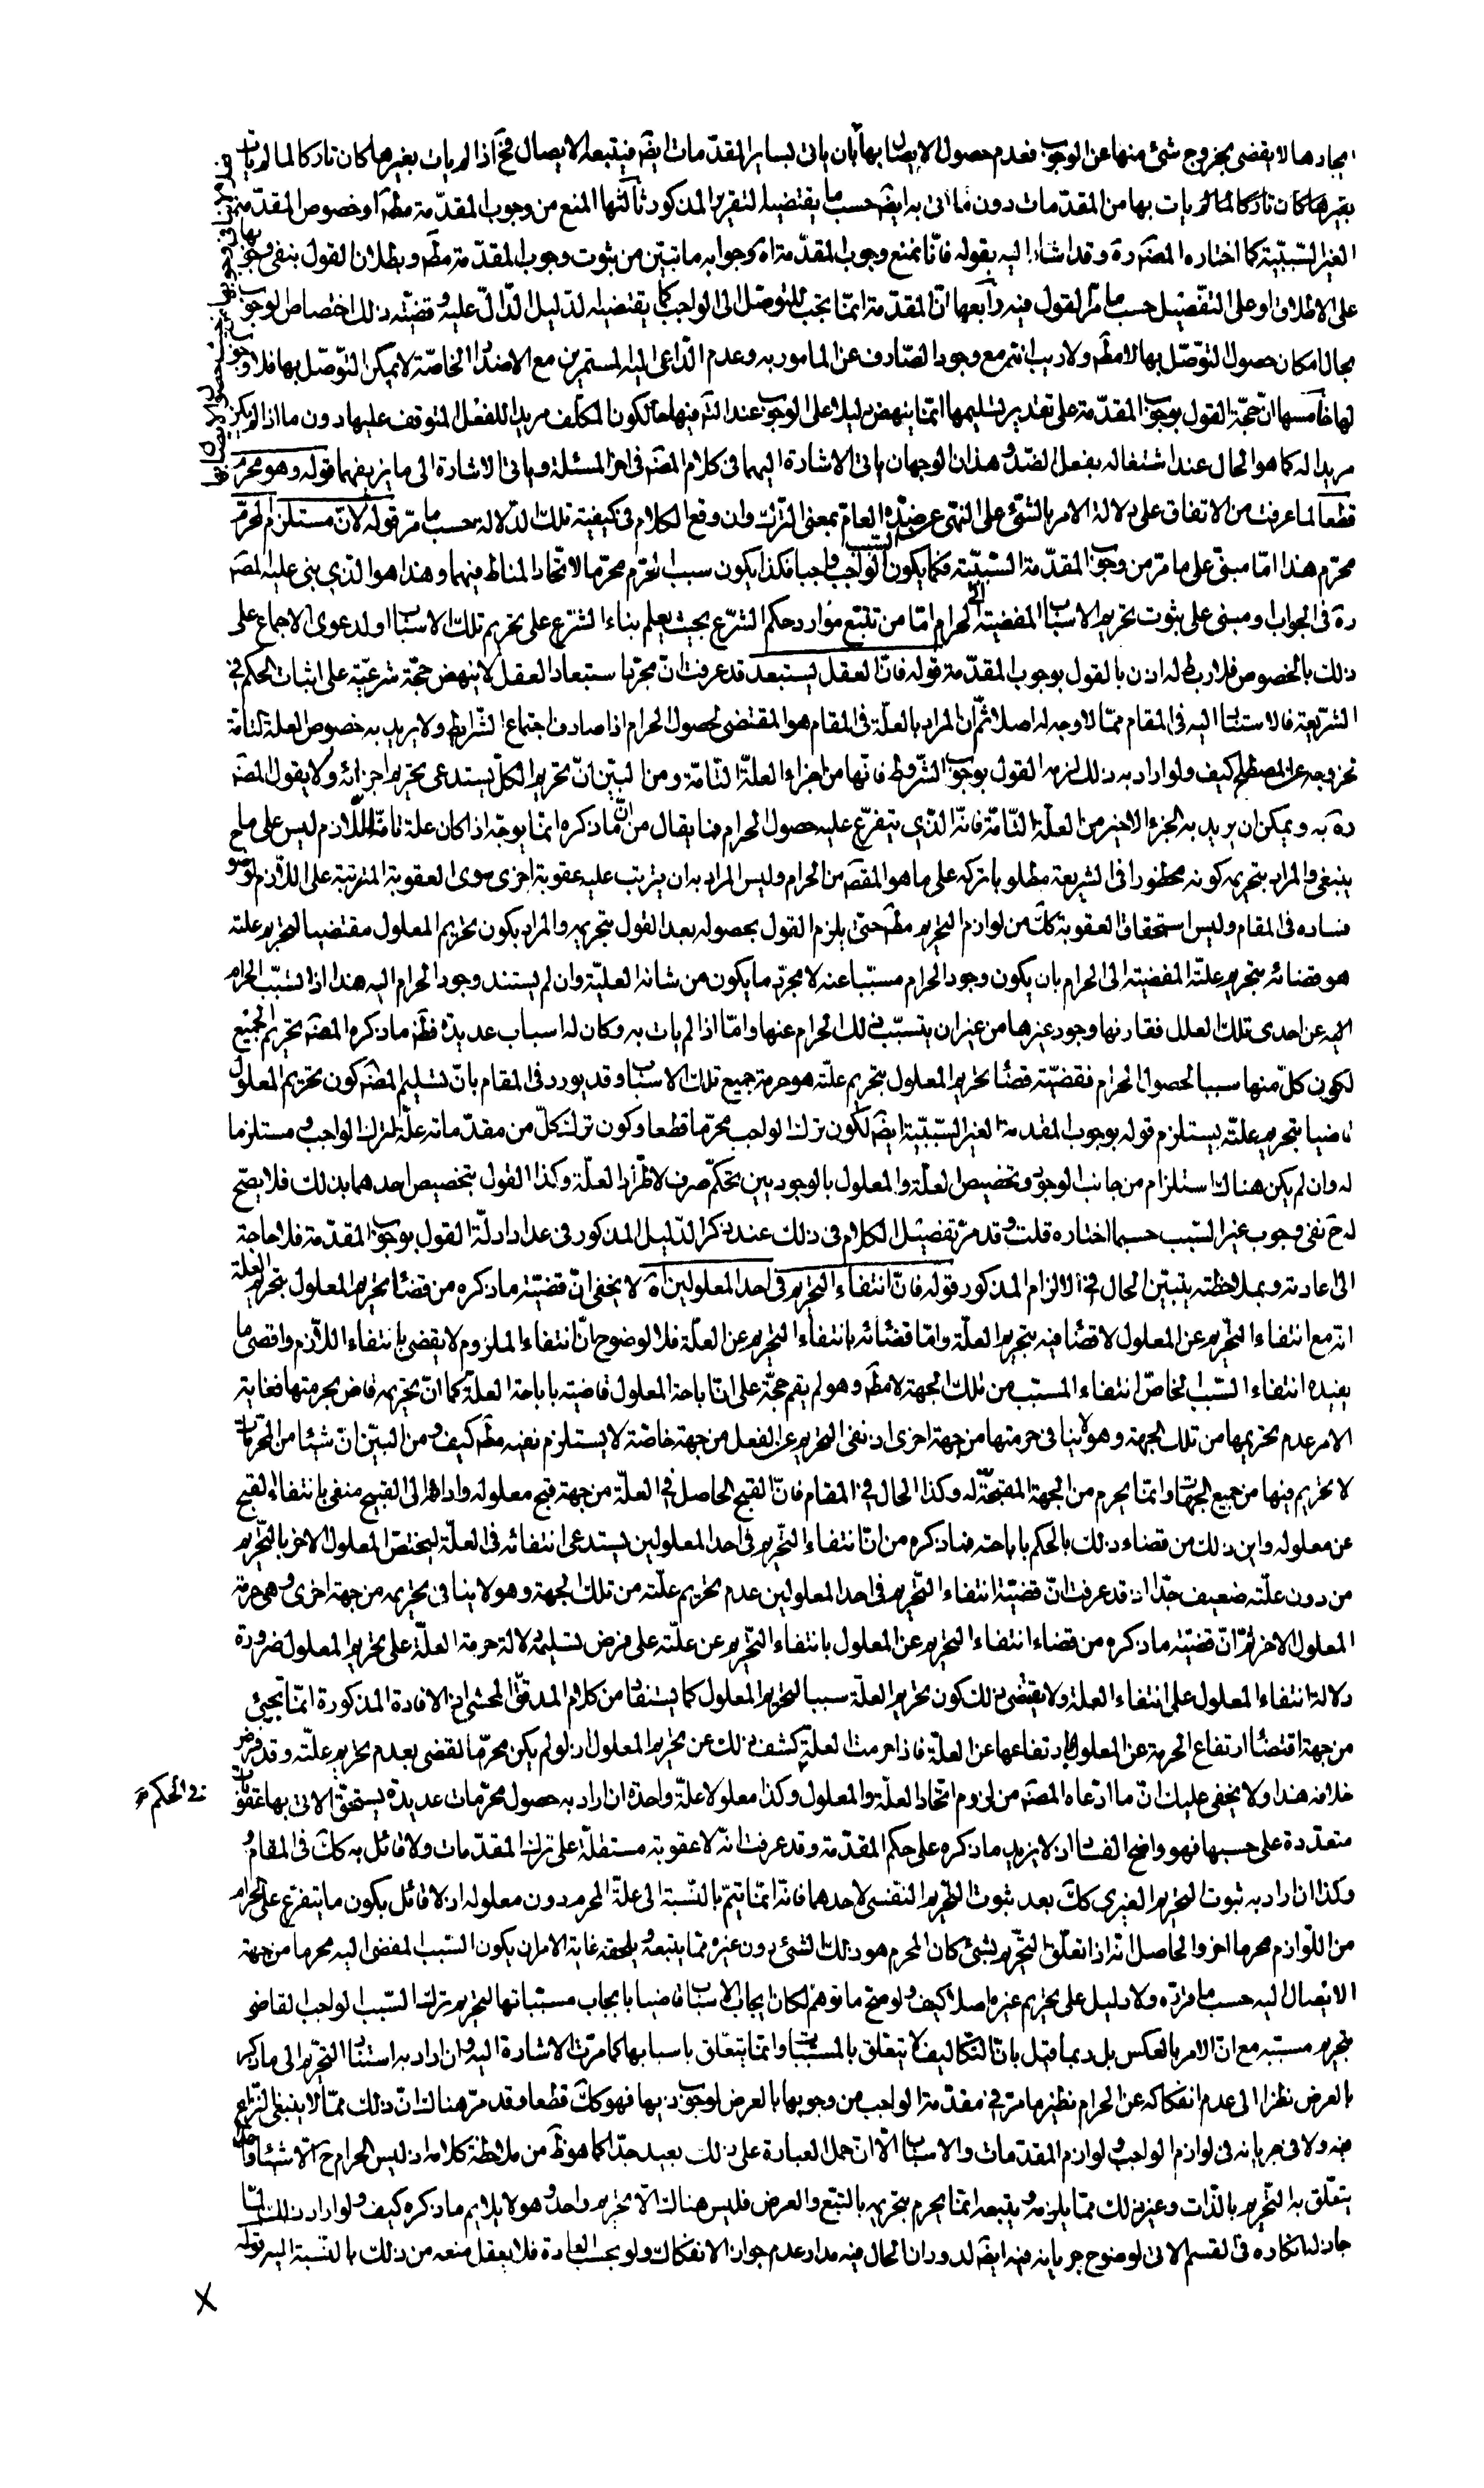 ايجادها لا يقضى بخروج شئ منها عن الوجوب فعدم حصول الايصال بها بان ياتى بساير المقدّمات ايضَ فيتبعه الايصال فحَ اذا لم يات بغيرها كان تاركا لما لم يات
بغيرها كان تاركا لما لم يات بها من المقدّمات دون ما اتى به ايضَ حسب ما يقتضيه التقرير المذكور ثالثها المنع من وجوب المقدّمة مطَم او خصوص المقدّمة
الغير السّببيّة كما اختاره المصَ ره وقد اشار اليه بقوله فانّا نمنع وجوب المقدّمة اه وجوابه ما تبيّن من ثبوت وجوب المقدّمة مطَم وبطلان القول بنفى وجوبها
على الاطلاق او على التفصيل حسب ما مرّ القول فيه رابعها انّ المقدّمة انمّا يجب للتوصّل الى الواجب كما يقتضيه الدّليل الدّالّ عليه وقضيّة ذلك اختصاص الوجوب
بحال امكان حصول التوصّل بها لا مطَم ولا ريب انّه مع وجود الصّارف عن المامور به وعدم الدّاعى اليه المستمرين مع الاضداد الخاصّة لا يمكن التوصّل بها فلا وجوب
لها خامسها انّ حجّة القول بوجوب المقدّمة على تقدير تسليمها انمّا ينهض دليلا على الوجوب عند التَم فيها حال كون المكلّف مريدا للفعل المتوقف عليها دون ما اذا لم يكن
مريدا له كما هو الحال عند اشتغاله بفعل الضدّ وهذان الوجهان ياتى الاشارة اليهما فى كلام المصَم فى اخر المسئلة وياتى الاشارة الى ما يزيفهما قوله وهو محرّم
قطعا لما عرفت من الاتفاق على دلالة الامر بالشئ على النهى عن ضدّه العامّ بمعنى الترك وان وقع الكلام فى كيفية تلك الدّلالة حسب ما مرّ قوله لانّ مستلزم المحرّم
محرّم هذا امّا مبنىّ على ما مرّ من وجوب المقدّمة السّببيّة فكما يكون سبب الواجب واجبا فكذا يكون سبب المحرّم محرّما لاتّحاد المناط فيهما وهذا هو الذى بنى عليه المصَم
ره فى الجواب ومبنى على ثبوت تحريم الاسباب المفضية الى الحرام امّا من تتبّع موارد حكم الشّرع بحيث يعلم بناء الشرع على تحريم تلك الاسباب او لدعوى الاجماع على
ذلك بالخصوص فلا ربط له اذن بالقول بوجوب المقدّمة قوله فانّ العقل يستبعد قد عرفت انّ مجرّد استبعاد العقل لا ينهض حجّة شرعيّة على اثبات الحكم فى
الشّريعة فالاستناد اليه فى المقام ممّا لا وجه له اصلا ثم انّ المراد بالعلّة فى المقام هو المقتضى لحصول الحرام اذا صادف اجتماع الشّرايط ولا يريد به خصوص العلة التامّة
لخروجه عن المصطلح كيف ولو اراد به ذلك لزمه القول بوجوب الشّروط فانّها من اجزاء العلّة التّامّة ومن البيّن انّ تحريم الكلّ يستدعى تحريم اجزائه ولا يقول المصَم
ره به ويمكن ان يريد به الجزء الاخير من العلّة التّامّة فانّه الذى يتفرّع عليه حصول الحرام فما يقال من انّ ما ذكره انمّا يوجّه اذا كان علة تامّة للّازم ليس على ما
ينبغى والمراد بتحريمه كونه محظورا فى الشريعة مطلوبا تركه على ما هو المقصَ من الحرام وليس المراد به ان يترتب عليه عقوبة اخرى سوى العقوبة المترتبة على اللّازم لوضو
فساده فى المقام وليس استحقاق العقوبة ككَ من لوازم التحريم مطَم حتىّ يلزم القول بحصوله بعد القول بتحريمه والمراد بكون تحريم المعلول مقتضيا لتحريم علته
هو قضائه بتحريم علّته المفضية الى الحرام بان يكون وجود الحرام مسبّبا عنه لا مجرّد ما يكون من شانه العليّة وان لم يستند وجود الحرام اليه هذا اذا تسبّب الحرام
اليه عن احدى تلك العلل فقارنها وجود غيرها من غير ان يتسبّب ذلك الحرام عنها وامّا اذا لم يات به وكان له اسباب عديدة فظَم ما ذكره المصَم تحريم الجميع
لكون كلّ منها سببا لحصول الحرام فقضيّة قضاء تحريم المعلول بتحريم علّته هو حرمة جميع تلك الاسباب وقد يورد فى المقام بانّ تسليم المصَم كون تحريم المعلول
قاضيا بتحريم علته يستلزم قوله بوجوب المقدمة الغير السّببيّة ايضَ لكون ترك الواجب محرّما قطعا وكون ترك كلّ من مقدّماته علّة لترك الواجب ومستلزما
له وان لم يكن هناك استلزام من جانب الوجود وتخصيص العلّة والمعلول بالوجوديين تحكمّ صرف لاطّراد العلّة وكذا القول بتخصيص احدهما بذلك فلا يصحّ
له حَ نفى وجوب غير السّبب حسبما اختاره قلت وقد مرّ تفصيل الكلام فى ذلك عند ذكر الدّليل المذكور فى عداد ادلّة القول بوجوب المقدّمة فلا حاجة
الى اعادته وبملاحظته يتبيّن الحال فى الالزام المذكور قوله فانّ انتفاء التحريم فى احد المعلولين اه لا يخفى انّ قضيّة ما ذكره من قضاء تحريم المعلول بتحريم العلة
انّه مع انتفاء التّحريم عن المعلول لا قضاء فيه بتحريم العلّة وامّا قضائه بانتفاء التحريم عن العلّة فلا لوضوح انّ انتفاء الملزوم لا يقضى بانتفاء اللّازم واقصى ما
يفيده انتفاء السّبب الخاصّ انتفاء المسبّب من تلك الجهة لا مطَم وهو لم يقم حجّة على انّ اباحة المعلول قاضية باباحة العلّة كما انّ تحريمه قاض بحرمتها فغاية
الامر عدم تحريمها من تلك الجهة وهو لا ينافى حرمتها من جهة اخرى اذ نفى التحريم عن الفعل من جهة خاصّة لا يستلزم نفيه مطَم كيف ومن البيّن انّ شيئا من المحرّمات
لا تحريم فيها من جميع الجهات وانمّا يحرم من الجهة المقبّحة له وكذا الحال فى المقام فانّ القبح الحاصل فى العلّة من جهة قبح معلوله وادائها الى القبيح منفى بانتفاء القبح
عن معلوله واين ذلك من قضاء ذلك بالحكم باباحته فما ذكره من انّ انتفاء التّحريم فى احد المعلولين يستدعى انتفائه فى العلّة ليختصّ المعلول الاخر بالتّحريم
من دون علّته ضعيف جدّا اذ قد عرفت انّ قضيّة انتفاء التّحريم فى احد المعلولين عدم تحريم علّته من تلك الجهة وهو لا ينافى تحريمه من جهة اخرى وهى حرمة
المعلول الاخر ثمّ انّ قضيّة ما ذكره من قضاء انتفاء التحريم عن المعلول بانتفاء التحريم عن علّته على فرض تسليمه دلالة حرمة العلّة على تحريم المعلول ضرورة
دلالة انتفاء المعلول على انتفاء العلة ولا يقضى ذلك كون تحريم العلّة سببا لتحريم المعلول كما يستفاد من كلام المدقّق المحشى اذ الافادة المذكورة انمّا تجيئ
من جهة اقتضاء ارتفاع الحرمة عن المعلول بارتفاعها عن العلة فاذا حرمت العلّة كشف ذلك عن تحريم المعلول اذ لو لم يكن محرّما لقضى بعدم تحريم علّته وقد فرض
خلافه هذا ولا يخفى عليك انّ ما ادّعاه المصَم من لزوم اتّحاد العلّة والمعلول وكذا معلولا علّة واحدة ان اراد به حصول محرّمات عديدة يستحقّ الاتى بها عقوبات
فى الحكم
متعدّدة على حسبها فهو واضح الفساد اذ لا يزيد ما ذكره على حكم المقدّمة وقد عرفت انّه لا عقوبة مستقلّة على ترك المقدّمات ولا قائل به كك فى المقام
وكذا ان اراد به ثبوت التحريم الغيرى ككَ بعد ثبوت التّحريم النفسى لاحدهما فانّه انمّا يتمّ بالنّسبة الى علّة المحرم دون معلوله اذ لا قائل بكون ما يتفرّع على الحرام
من اللّوازم محرما اخر والحاصل انّه اذا تعلّق التّحريم بشئ كان المحرم هو ذلك الشئ دون غيره ممّا يتبعه ويلحقه غاية الامر ان يكون السّبب المفضى اليه محرما من جهة
الايصال اليه حسب ما قرّره ولا دليل على تحريم غيره اصلا كيف ولو صحّ ما توهّم لكان ايجاب الاسباب قاضيا بايجاب مسبّباتها لتحريم ترك السّبب الواجب القاضى
بتحريم مسبّبه مع انّ الامر بالعكس بل ربما قيل بانّ التكاليف لا يتعلق بالمسبّبات وانمّا يتعلّق باسبابها كما مرّت الاشارة اليه وان اراد به استناد التحريم الى ما ذكر
بالعرض نظرا الى عدم انفكاكه عن الحرام نظير ما مرّ فى مقدّمة الواجب من وجوبها بالعرض لوجوب ذيها فهو كك قطعا وقد مرّ هناك انّ ذلك ممّا لا ينبغى النّزاع
فيه ولا فى جريانه فى لوازم الواجب ولوازم المقدّمات والاسباب الّا انّ حمل العبارة على ذلك بعيد جدّا كما هو ظَ من ملاحظة كلامه اذ ليس الحرام حَ الّا شيئا واحدا
يتعلّق به التّحريم بالذّات وغير ذلك ممّا يلزمه ويتبعه انمّا يحرم بتحريمه بالتبع والعرض فليس هناك الّا تحريم واحد وهو لا يلايم ما ذكره كيف ولو اراد ذلك لما
جاز له انكاره فى القسم الاتى لوضوح جريانه فيه ايضَ لدوران الحال فيه مدار عدم جواز الانفكاك ولو بحسب العادة فلا يعقل منعه من ذلك بالنّسبة اليه قوله